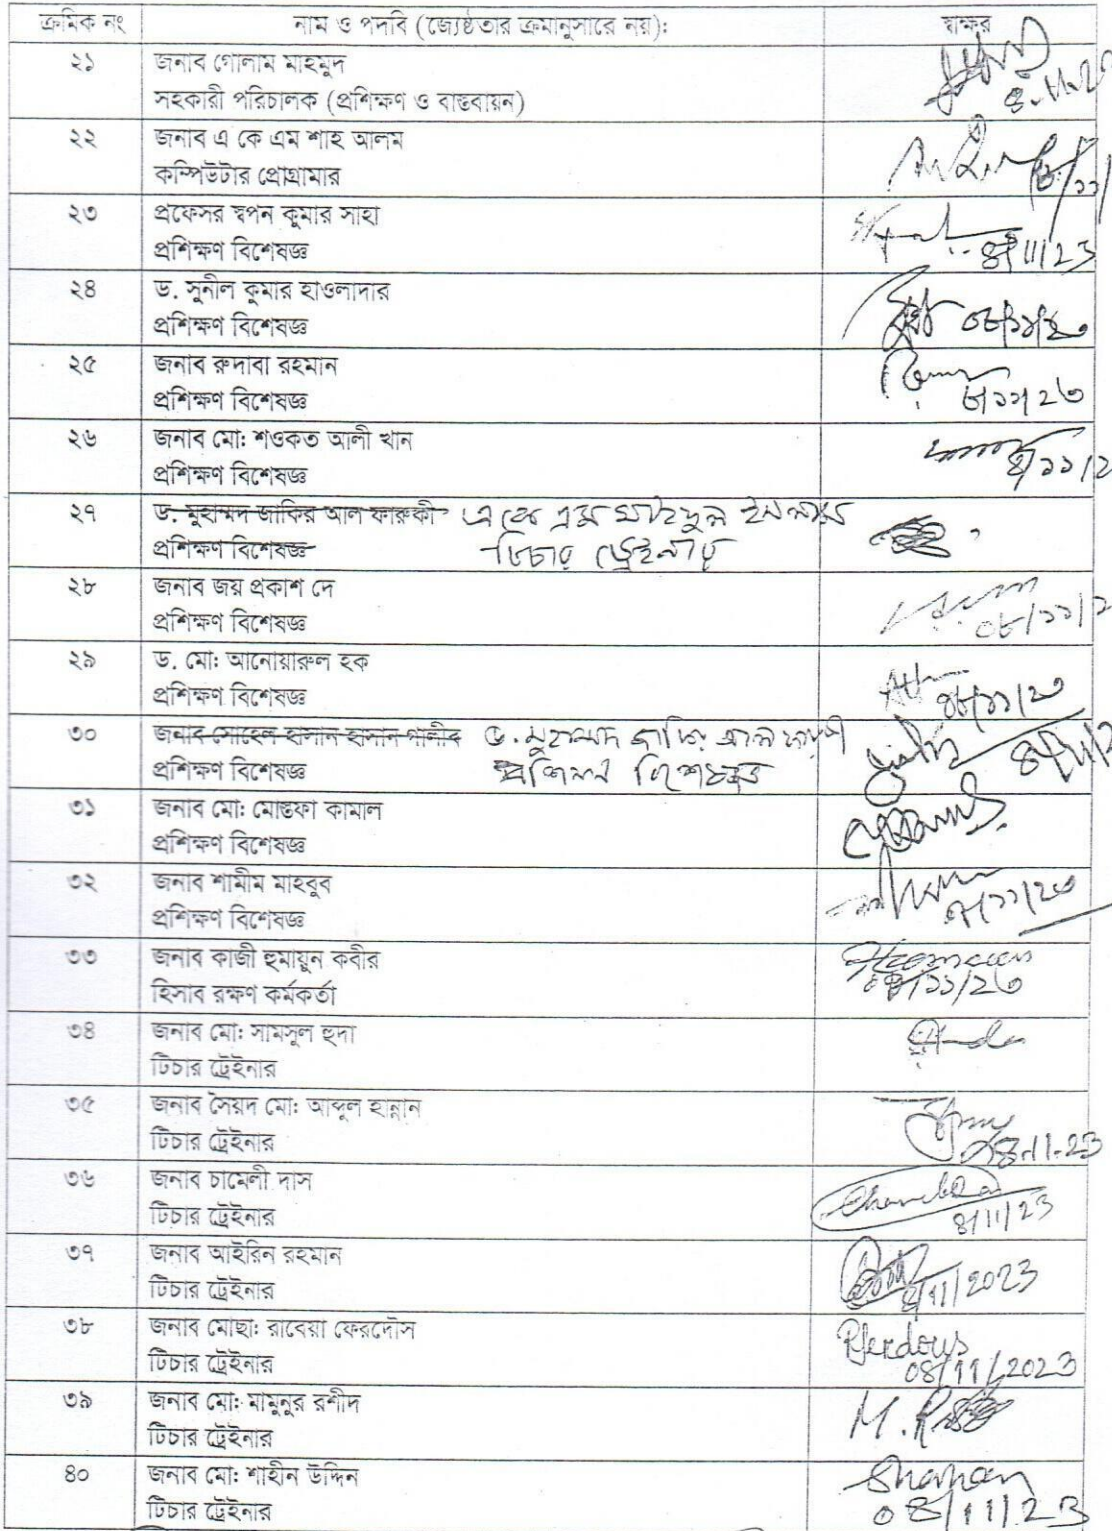 ক্রমিক নং নাম ও পদবি (জ্যেষ্ঠতার ক্রমানুসারে নয়): স্বাক্ষর
২১ জনাব গোলাম মাহমুদ
সহকারী পরিচালক (প্রশিক্ষণ ও বাস্তবায়ন) ৪-১১-২৩
২২ জনাব এ কে এম শাহ আলম
কম্পিউটার প্রোগ্রামার
২৩ প্রফেসর স্বপন কুমার সাহা
প্রশিক্ষণ বিশেষজ্ঞ 8/11/23
২৪ ড. সুনীল কুমার হাওলাদার
প্রশিক্ষণ বিশেষজ্ঞ ০৮/১১/২৩
২৫ জনাব রুদাবা রহমান
প্রশিক্ষণ বিশেষজ্ঞ ৮/১১/২৩
২৬ জনাব মো: শওকত আলী খান
প্রশিক্ষণ বিশেষজ্ঞ
২৭ ড. মুহাম্মদ জাকির আল ফারুকী এ কে এম সাইদুল ইসলাম
প্রশিক্ষণ বিশেষজ্ঞ টিচার ট্রেইনার
২৮ জনাব জয় প্রকাশ দে
প্রশিক্ষণ বিশেষজ্ঞ ০৮/১১/২
২৯ ড. মো: আনোয়ারুল হক
প্রশিক্ষণ বিশেষজ্ঞ ০৮/১১/২৩
৩০ জনাব সোহেল হাসান হাসান গালীব ড. মুহাম্মদ জাকির আল ফারুকী
প্রশিক্ষণ বিশেষজ্ঞ প্রশিক্ষণ বিশেষজ্ঞ
৩১ জনাব মো: মোস্তফা কামাল
প্রশিক্ষণ বিশেষজ্ঞ
৩২ জনাব শামীম মাহবুব
প্রশিক্ষণ বিশেষজ্ঞ
৩৩ জনাব কাজী হুমায়ুন কবীর
হিসাব রক্ষণ কর্মকর্তা ০৮/১১/২৩
৩৪ জনাব মো: সামসুল হুদা
টিচার ট্রেইনার
৩৫ জনাব সৈয়দ মো: আব্দুল হান্নান
টিচার ট্রেইনার 08-11-23
৩৬ জনাব চামেলী দাস
টিচার ট্রেইনার 8/11/23
৩৭ জনাব আইরিন রহমান
টিচার ট্রেইনার 8/11/2023
৩৮ জনাব মোছা: রাবেয়া ফেরদৌস Rferdous
টিচার ট্রেইনার 08/11/2023
৩৯ জনাব মো: মামুনুর রশীদ
টিচার ট্রেইনার
৪০ জনাব মো: শাহীন উদ্দিন
টিচার ট্রেইনার 08/11/23